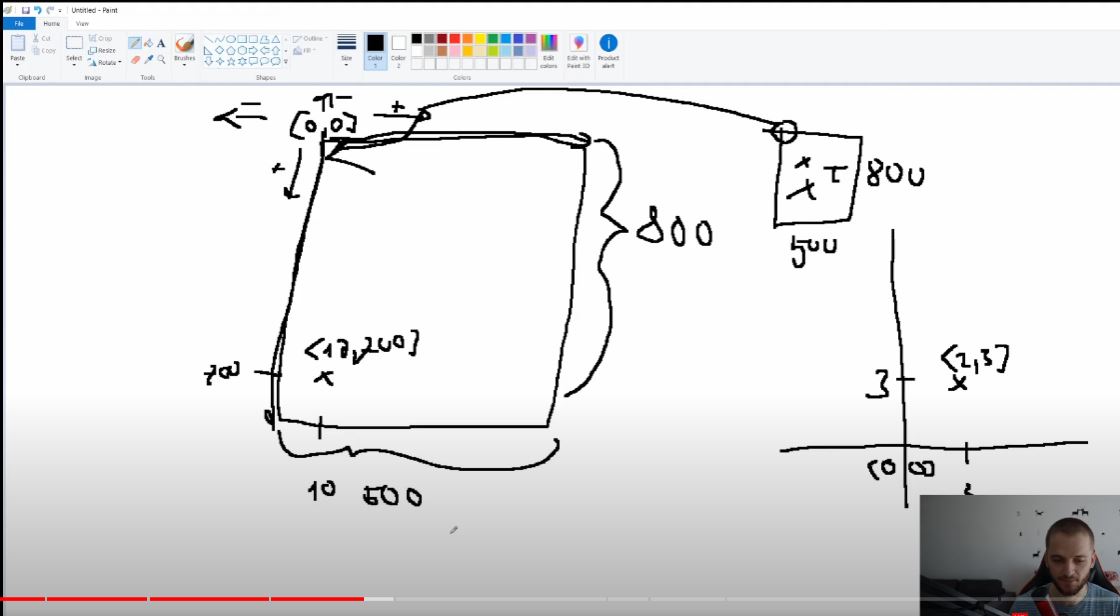 Untitled - Paint
File Home View
Cut
Copy
Paste
Clipboard
Crop
Resize
Rotate
Select
Image
Tools
Brushes
Outline
Fill
Shapes
Size
Color 1
Color 2
Edit colors
Colors
Edit with Paint 3D
Product alert
- +
[0,0]
+
800
800
500
200]
[2,3]
3
10 500